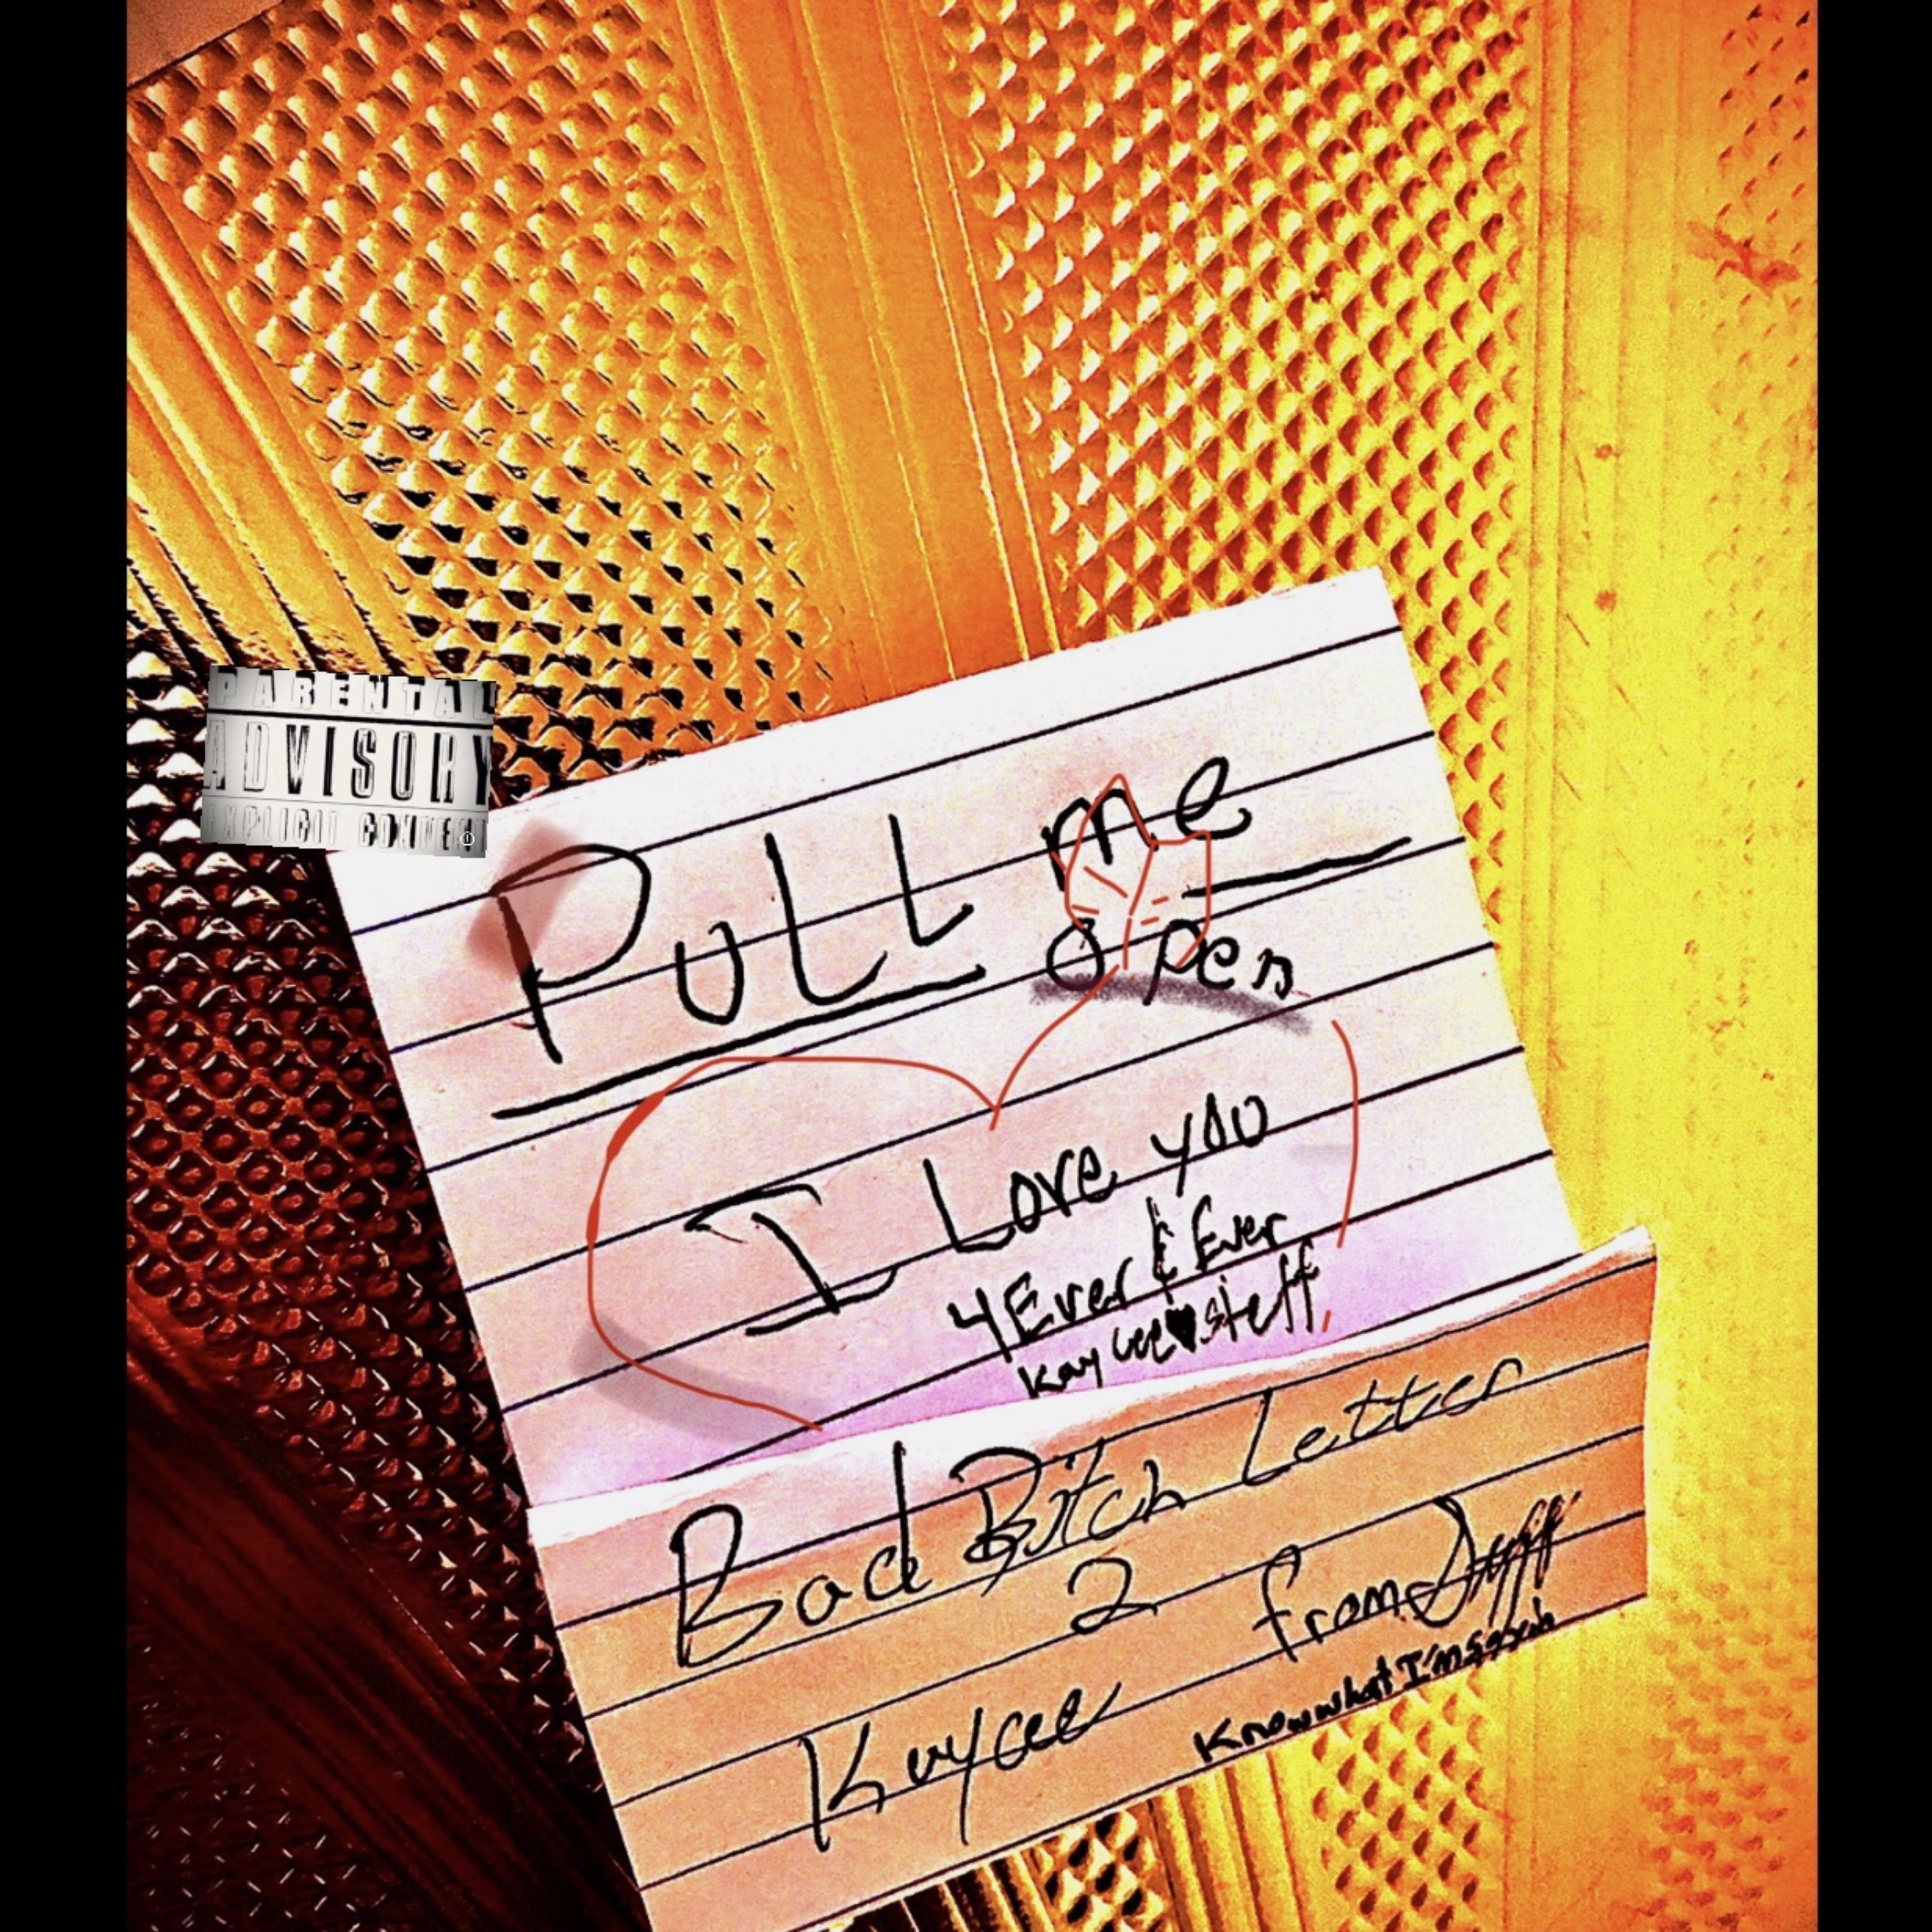 PARENTAL
ADVISORY
EXPLICIT CONTENT
PULL me
open
I Love you
4Ever & Ever
Kaycee ♥ steff
Bad Bitch Letter
2 from Duff
Kaycee KnowwhatI'msayn